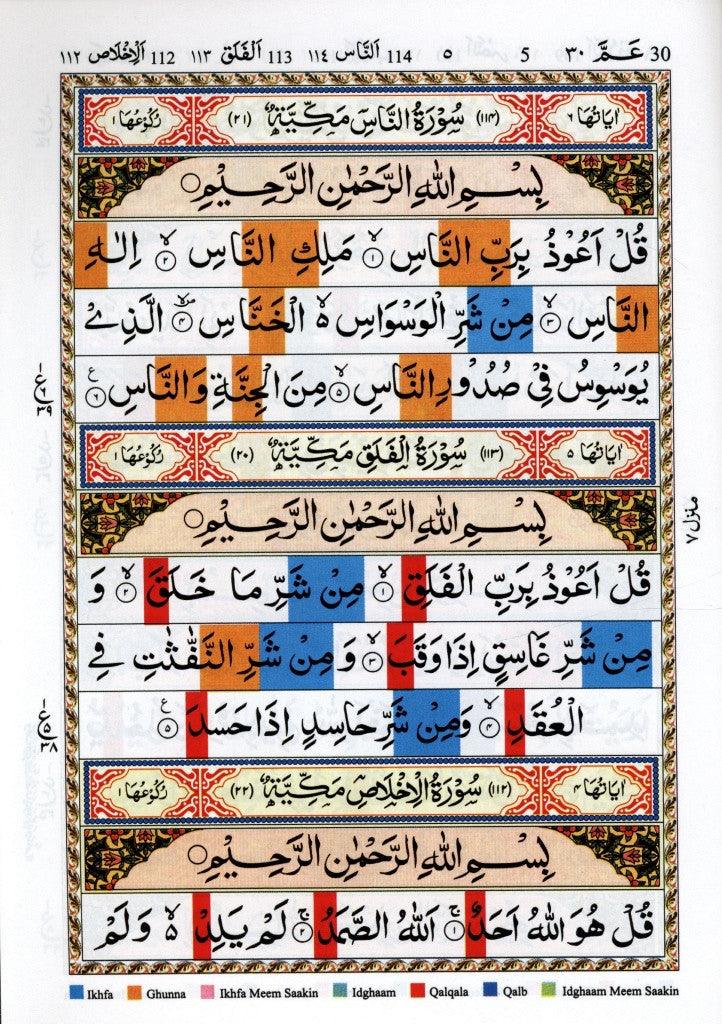 30 عَمَّ ٣٠ 5 ٥ 114 اَلنَّاس ١١٤ 113 اَلْفَلَق ١١٣ 112 اَلْاِخْلَاص ١١٢
اٰيَاتُهَا ٦ (١١٤) سُوْرَةُ النَّاسِ مَكِّيَّةٌ (٢١) رُكُوْعُهَا ١
بِسْمِ اللّٰهِ الرَّحْمٰنِ الرَّحِيْمِ
قُلْ اَعُوْذُ بِرَبِّ النَّاسِ ۙ‏ ١ مَلِكِ النَّاسِ ۙ‏ ٢ اِلٰهِ
النَّاسِ ۙ‏ ٣ مِنْ شَرِّ الْوَسْوَاسِ ۙ الْخَنَّاسِ ٤ الَّذِيْ
يُوَسْوِسُ فِيْ صُدُوْرِ النَّاسِ ۙ‏ ٥ مِنَ الْجِنَّةِ وَالنَّاسِ ٦ ع
ع ١ ٣٩
اٰيَاتُهَا ٥ (١١٣) سُوْرَةُ الْفَلَقِ مَكِّيَّةٌ (٢٠) رُكُوْعُهَا ١
بِسْمِ اللّٰهِ الرَّحْمٰنِ الرَّحِيْمِ
منزل ٧
قُلْ اَعُوْذُ بِرَبِّ الْفَلَقِ ۙ‏ ١ مِنْ شَرِّ مَا خَلَقَ ۙ‏ ٢ وَ
مِنْ شَرِّ غَاسِقٍ اِذَا وَقَبَ ۙ‏ ٣ وَ مِنْ شَرِّ النَّفّٰثٰتِ فِي
الْعُقَدِ ۙ‏ ٤ وَمِنْ شَرِّ حَاسِدٍ اِذَا حَسَدَ ٥ ع
ع ٥ ٣٨
اٰيَاتُهَا ٤ (١١٢) سُوْرَةُ الْاِخْلَاصِ مَكِّيَّةٌ (٢٢) رُكُوْعُهَا ١
بِسْمِ اللّٰهِ الرَّحْمٰنِ الرَّحِيْمِ
قُلْ هُوَ اللّٰهُ اَحَدٌ ۚ‏ ١ اَللّٰهُ الصَّمَدُ ۚ‏ ٢ لَمْ يَلِدْ ۙ۬ وَلَمْ
Ikhfa Ghunna Ikhfa Meem Saakin Idghaam Qalqala Qalb Idghaam Meem Saakin